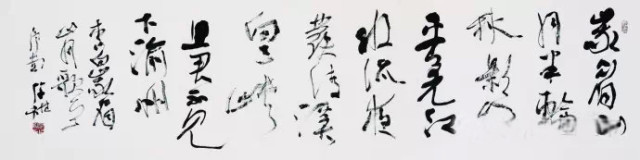 峩眉山
月半輪
秋影入
平羌江
水流夜
發清溪
向三峽
思君不見
下渝州
李白峩眉
山月歌